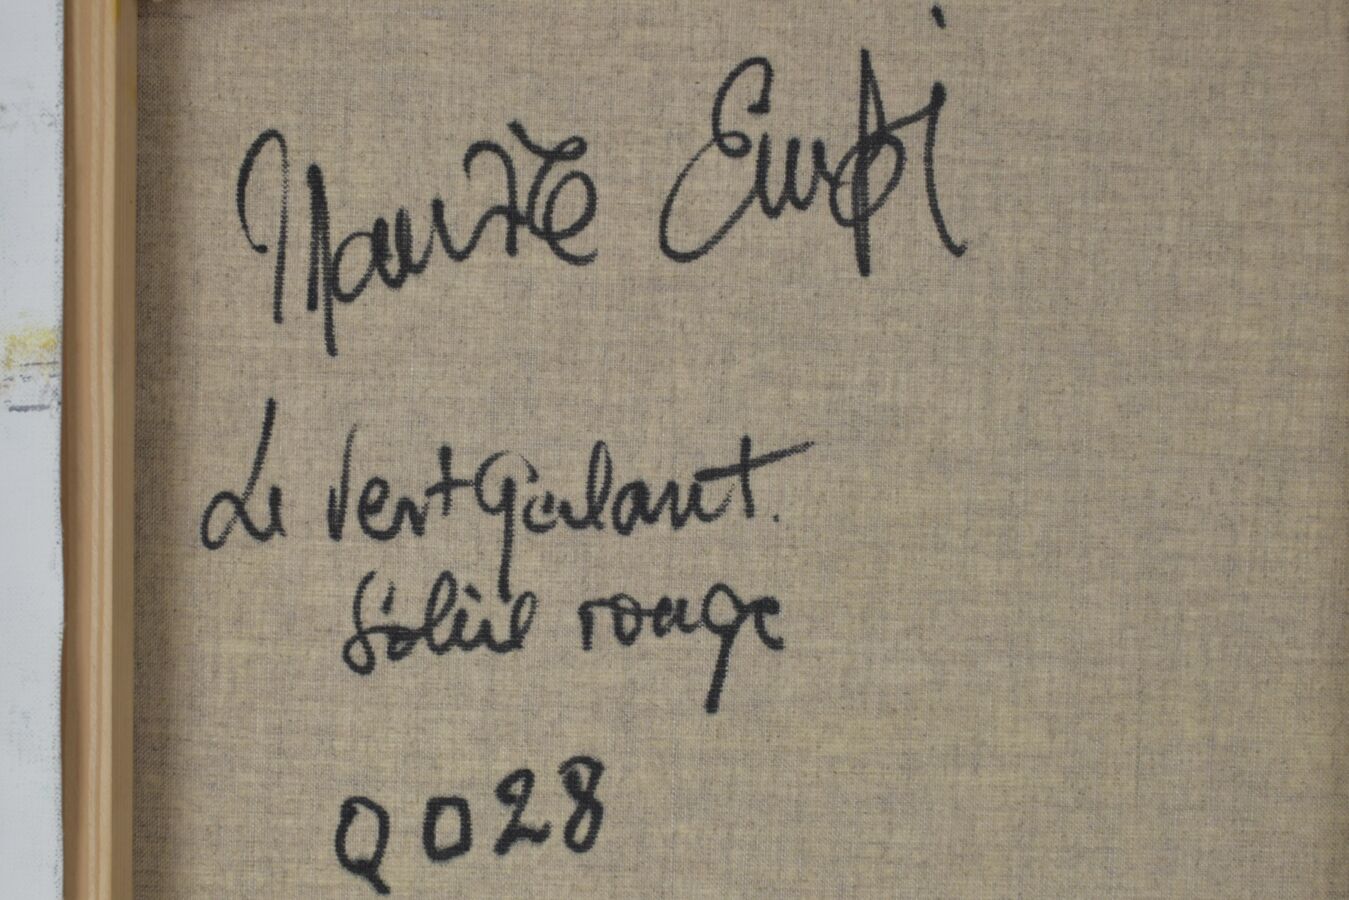 Maurice Empi
Le Vert Galant.
Soleil rouge
Q028